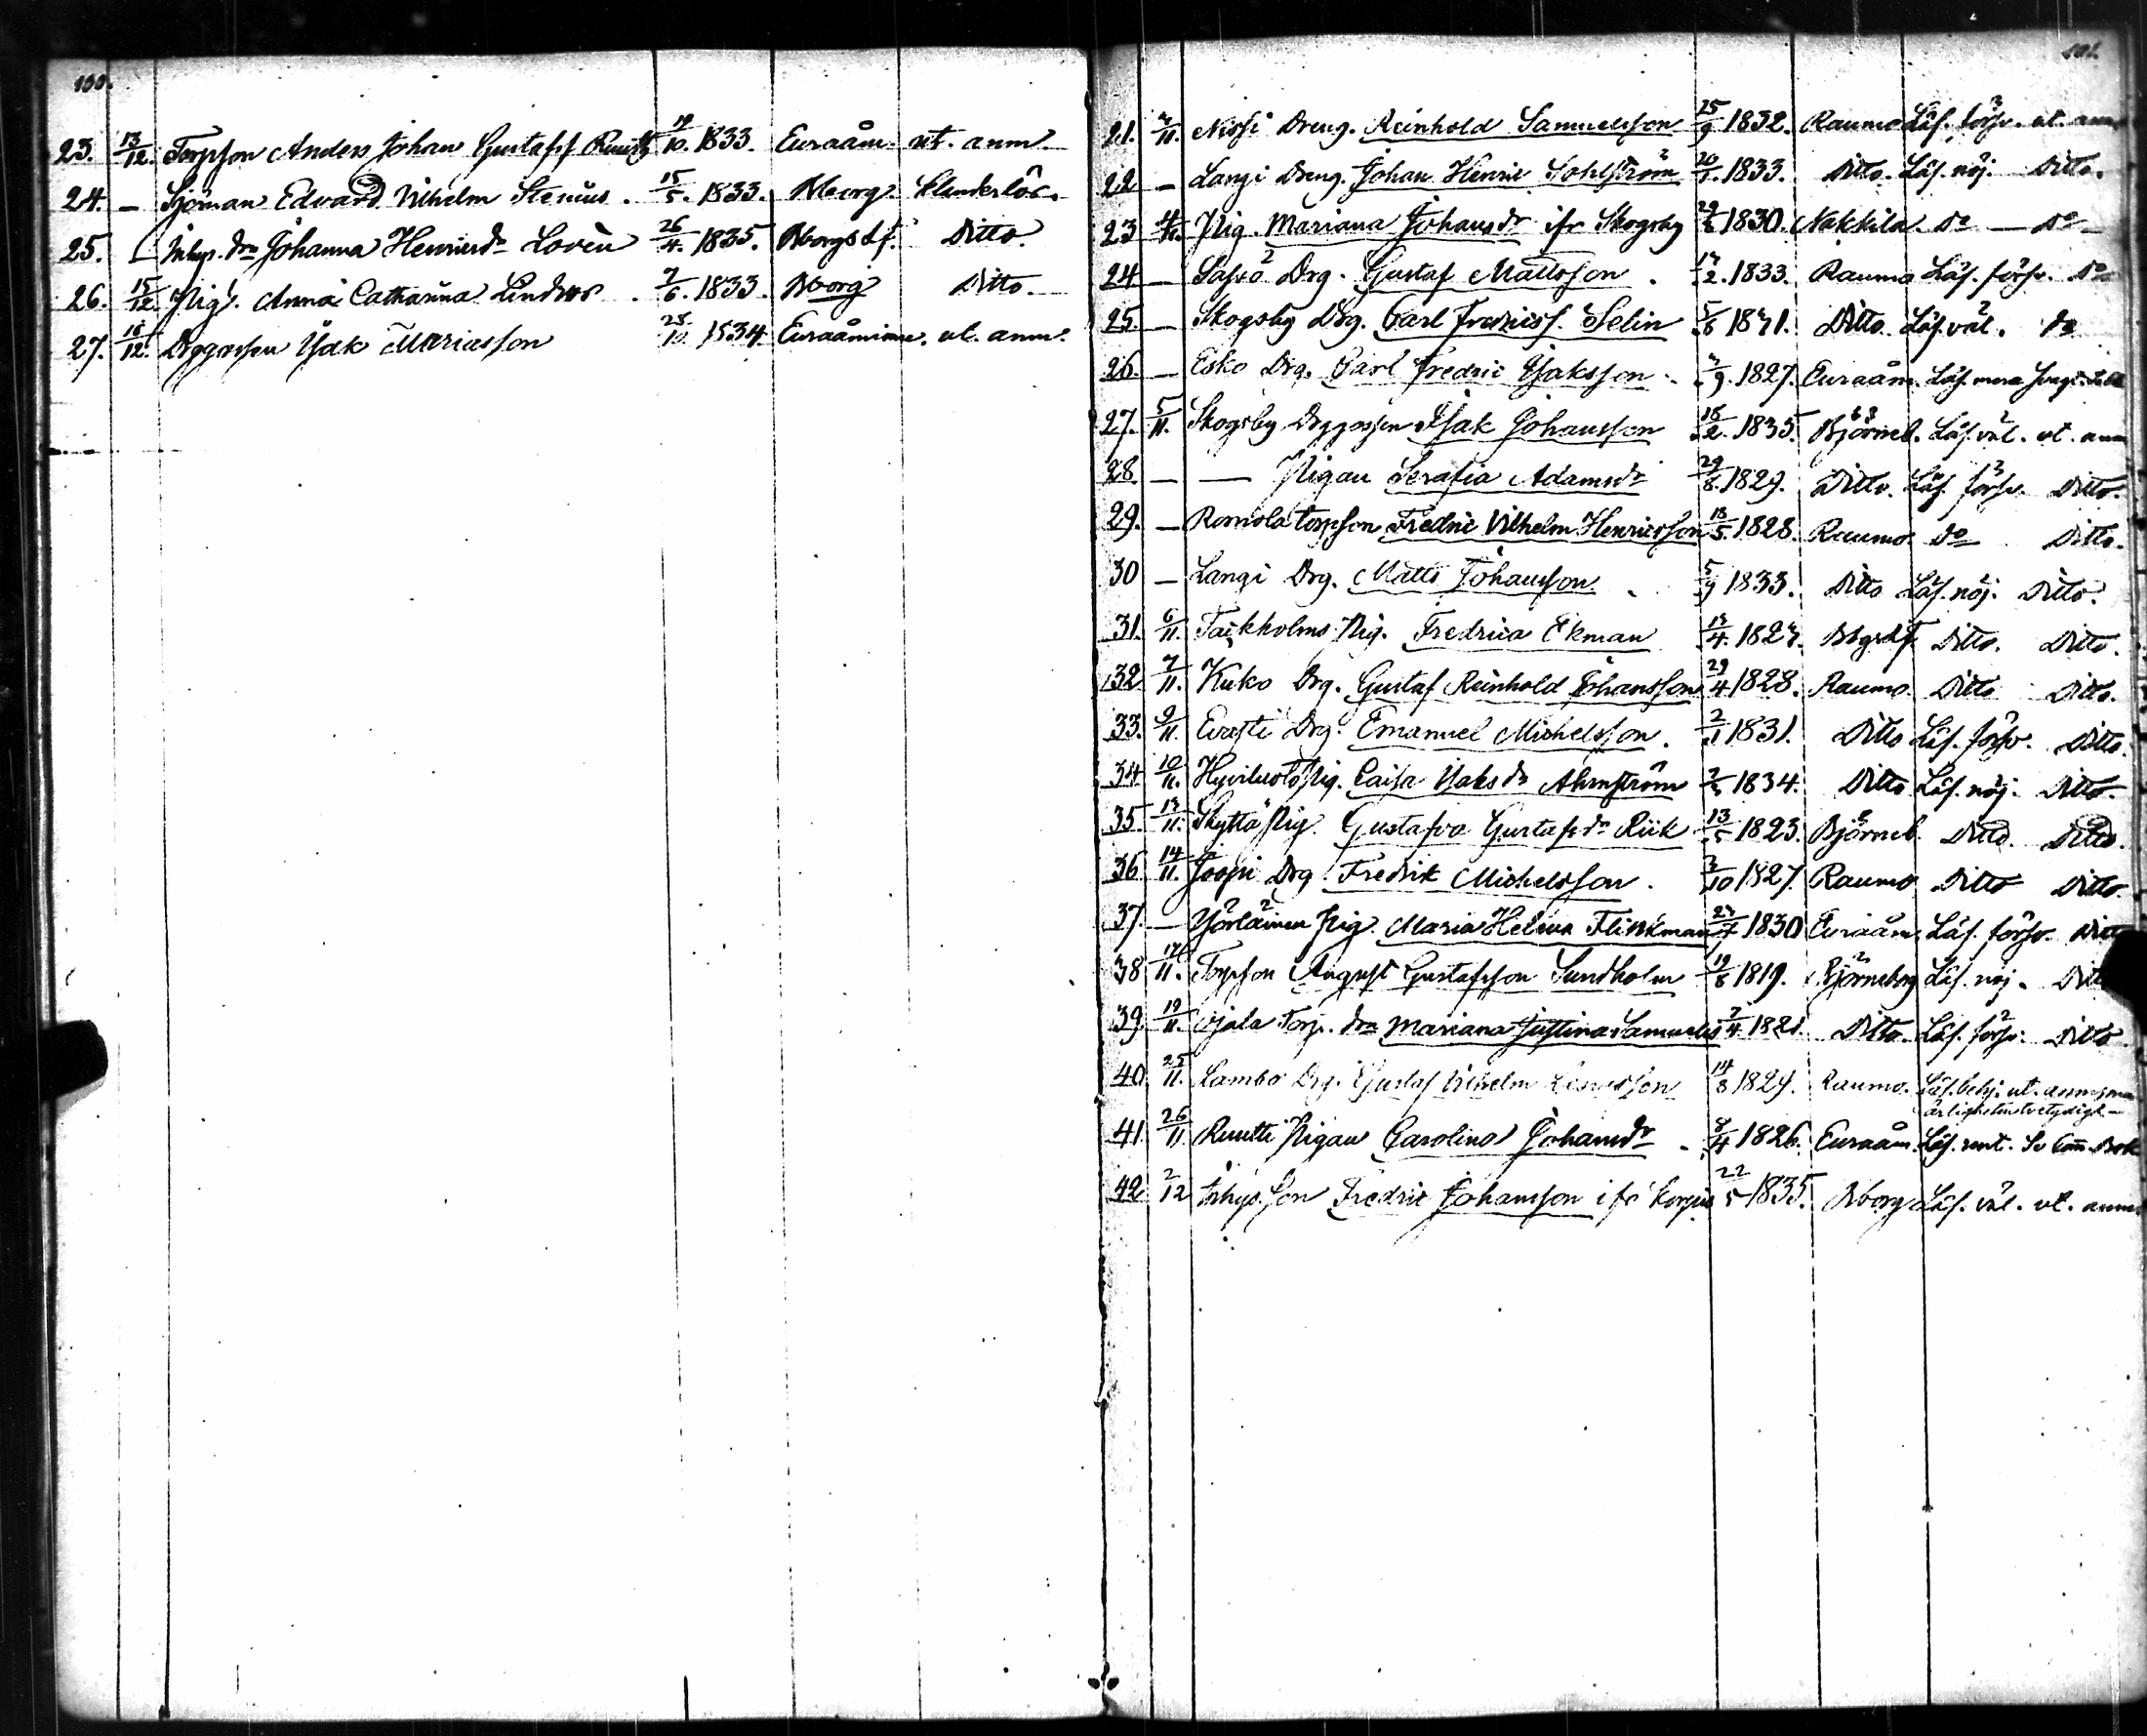 100.
23. 13/12. Torpson Anders Johan Gustafss 19/10. 1833. Euraåm. ut. anm.
24. — Sjöman Edvard Vilhelm Stenius. 15/5. 1833. Bborg. klanderlös.
25. Inhys. dr Johanna Henricsdr Lovén 26/4. 1835. Bborgs Lf. Ditto.
26. 15/12. Pig. Anna Catharina Lindros. 7/6. 1833. Bborg Ditto.
27. 16/12. Drggossen Isak Mariasson 25/10. 1834. Euraåminne. ut. anm.
101.
21. 2/11. Nissi Dreng. Reinhold Samuelsson 25/9 1832. Raumo Läs. försv. ut. anm
22 — Langi Dreng. Johan Henric Sohlström 20/7. 1833. Ditto. Läs. nöj. Ditto.
23 4/11. Pig. Mariana Johansdr ifr Skogsby 29/6 1830. Nakkila. Do — Do
24 — Salvo Drg. Gustaf Mattsson. 17/2. 1833. Raumo Läs. försv. Do
25. — Skogsby Drg. Carl Fredricss. Selin 5/6 1831. Ditto. Läs. väl. Do
26. — Esko Drg. Carl Fredric Isaksson. 2/9. 1827. Euraåm. Läs. mera
27. 5/11. Skogsby Drggossen Isak Johansson 16/2. 1835. Björneb. Läs. väl. ut. anm
28. — — Pigan Serafia Adamsdr 29/8. 1829. Ditto. Läs. försv. Ditto.
29. — Romola torpson Fredric Vilhelm Henricsson 18/5. 1828. Raumo. Do Ditto.
30 — Langi Drg. Matts Johansson. 5/9 1833. Ditto Läs. nöj. Ditto.
31. 6/11. Tackholms Pig. Fredrica Ekman 13/4. 1827. Bbgs Lf Ditto. Ditto.
32 7/11. Kuko Drg. Gustaf Reinhold Johansson 29/4 1828. Raumo. Ditto Ditto.
33. 9/11. Evasti Drg. Emanuel Michelsson. 2/1 1831. Ditto Läs. försv. Ditto.
34 10/11. Pig. Caisa Isaksdr Almström 2/5 1834. Ditto Läs. nöj. Ditto.
35 13/11. Skyttä Pig. Gustafva Gustafsdr Riik 13/5 1823. Björneb. Ditto. Ditto.
36. 14/11. Joopi Drg. Fredrik Michelsson. 3/10 1827. Raumo Ditto Ditto.
37. — Yörläinen Pig. Maria Helena Flinkman 27/7 1830 Euraåm. Läs. försv. Ditto
38 17/11. Torpson August Gustafsson Sundholm 19/8 1819. Björneborg Läs. nöj. Ditto
39. 19/11. Ojala Torp. dr Mariana Justina Samuels 7/4. 1821. Ditto. Läs. försv. Ditto.
40 25/11. Lambo Drg. Gustaf Vilhelm 14/8 1829. Raumo. Läs. behj. ut. anm
41. 26/11 Ruutti Pigan Carolina Johansdr. 8/4 1826. Euraåm. Läs. rent.
42. 2/12 Inhys. Son Fredric Johansson ifr 22/5 1835. Bborg Läs. väl. ut. anm.